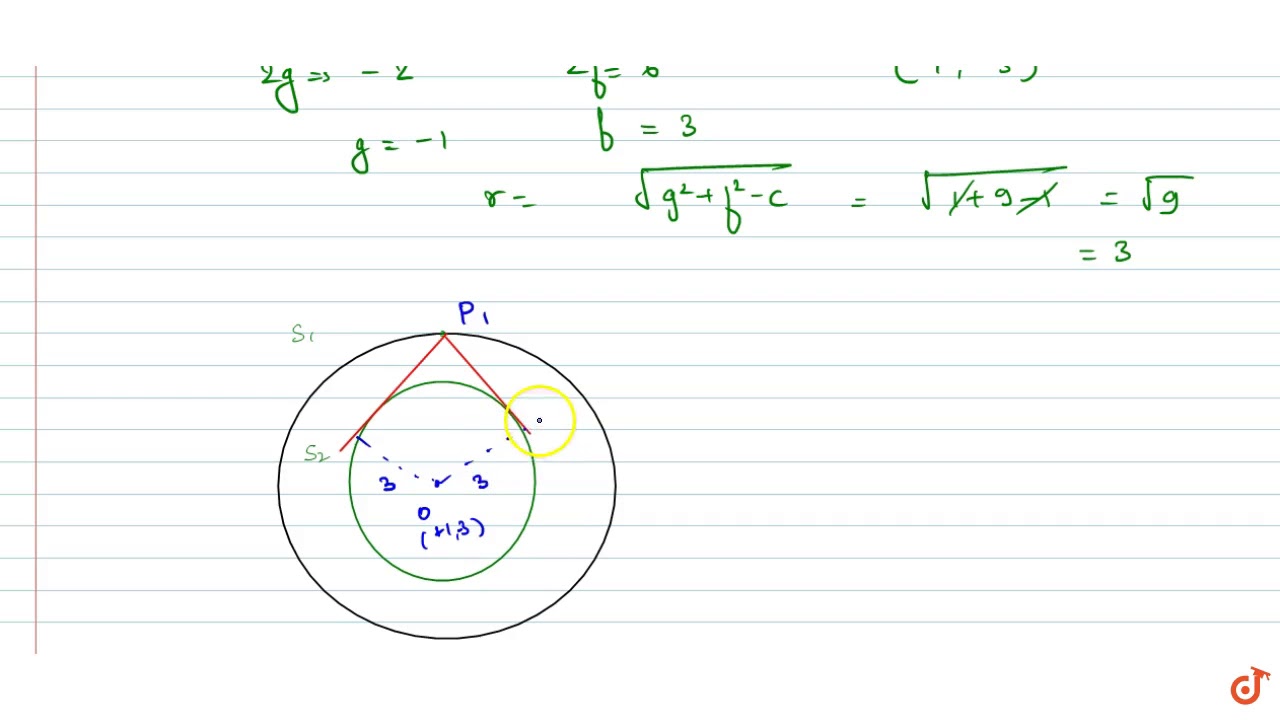 2g => - 2 2f = 6
g = -1 f = 3
r = √g²+f²-c = √1+9-1 = √9
= 3
P1
S1
S2
3 3
O
(+1,3)